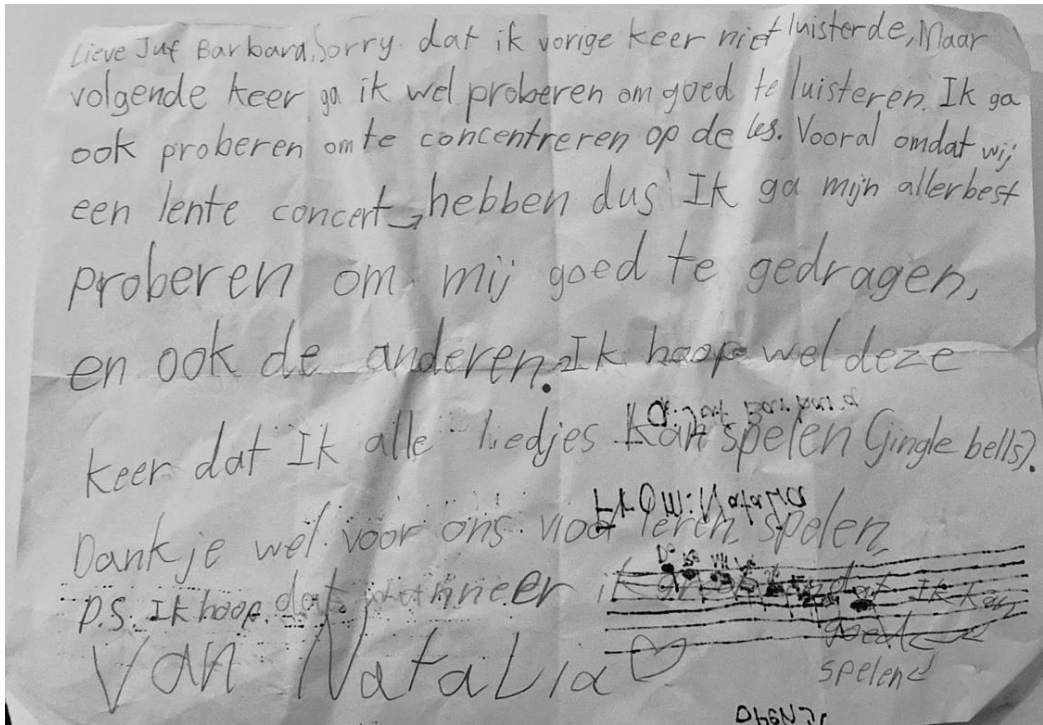 Lieve Juf Barbara, Sorry dat ik vorige keer niet luisterde, Maar
volgende keer ga ik wel proberen om goed te luisteren. Ik ga
ook proberen om te concentreren op de les. Vooral omdat wij
een lente concert hebben dus Ik ga mijn allerbest
proberen om mij goed te gedragen,
en ook de anderen. Ik hoop wel deze
keer dat Ik alle liedjes kan spelen (Gingle bells).
Dank je wel voor ons viool leren spelen,
P.S. Ik hoop dat ik Ik kan
goed
spelen
Van Natalia